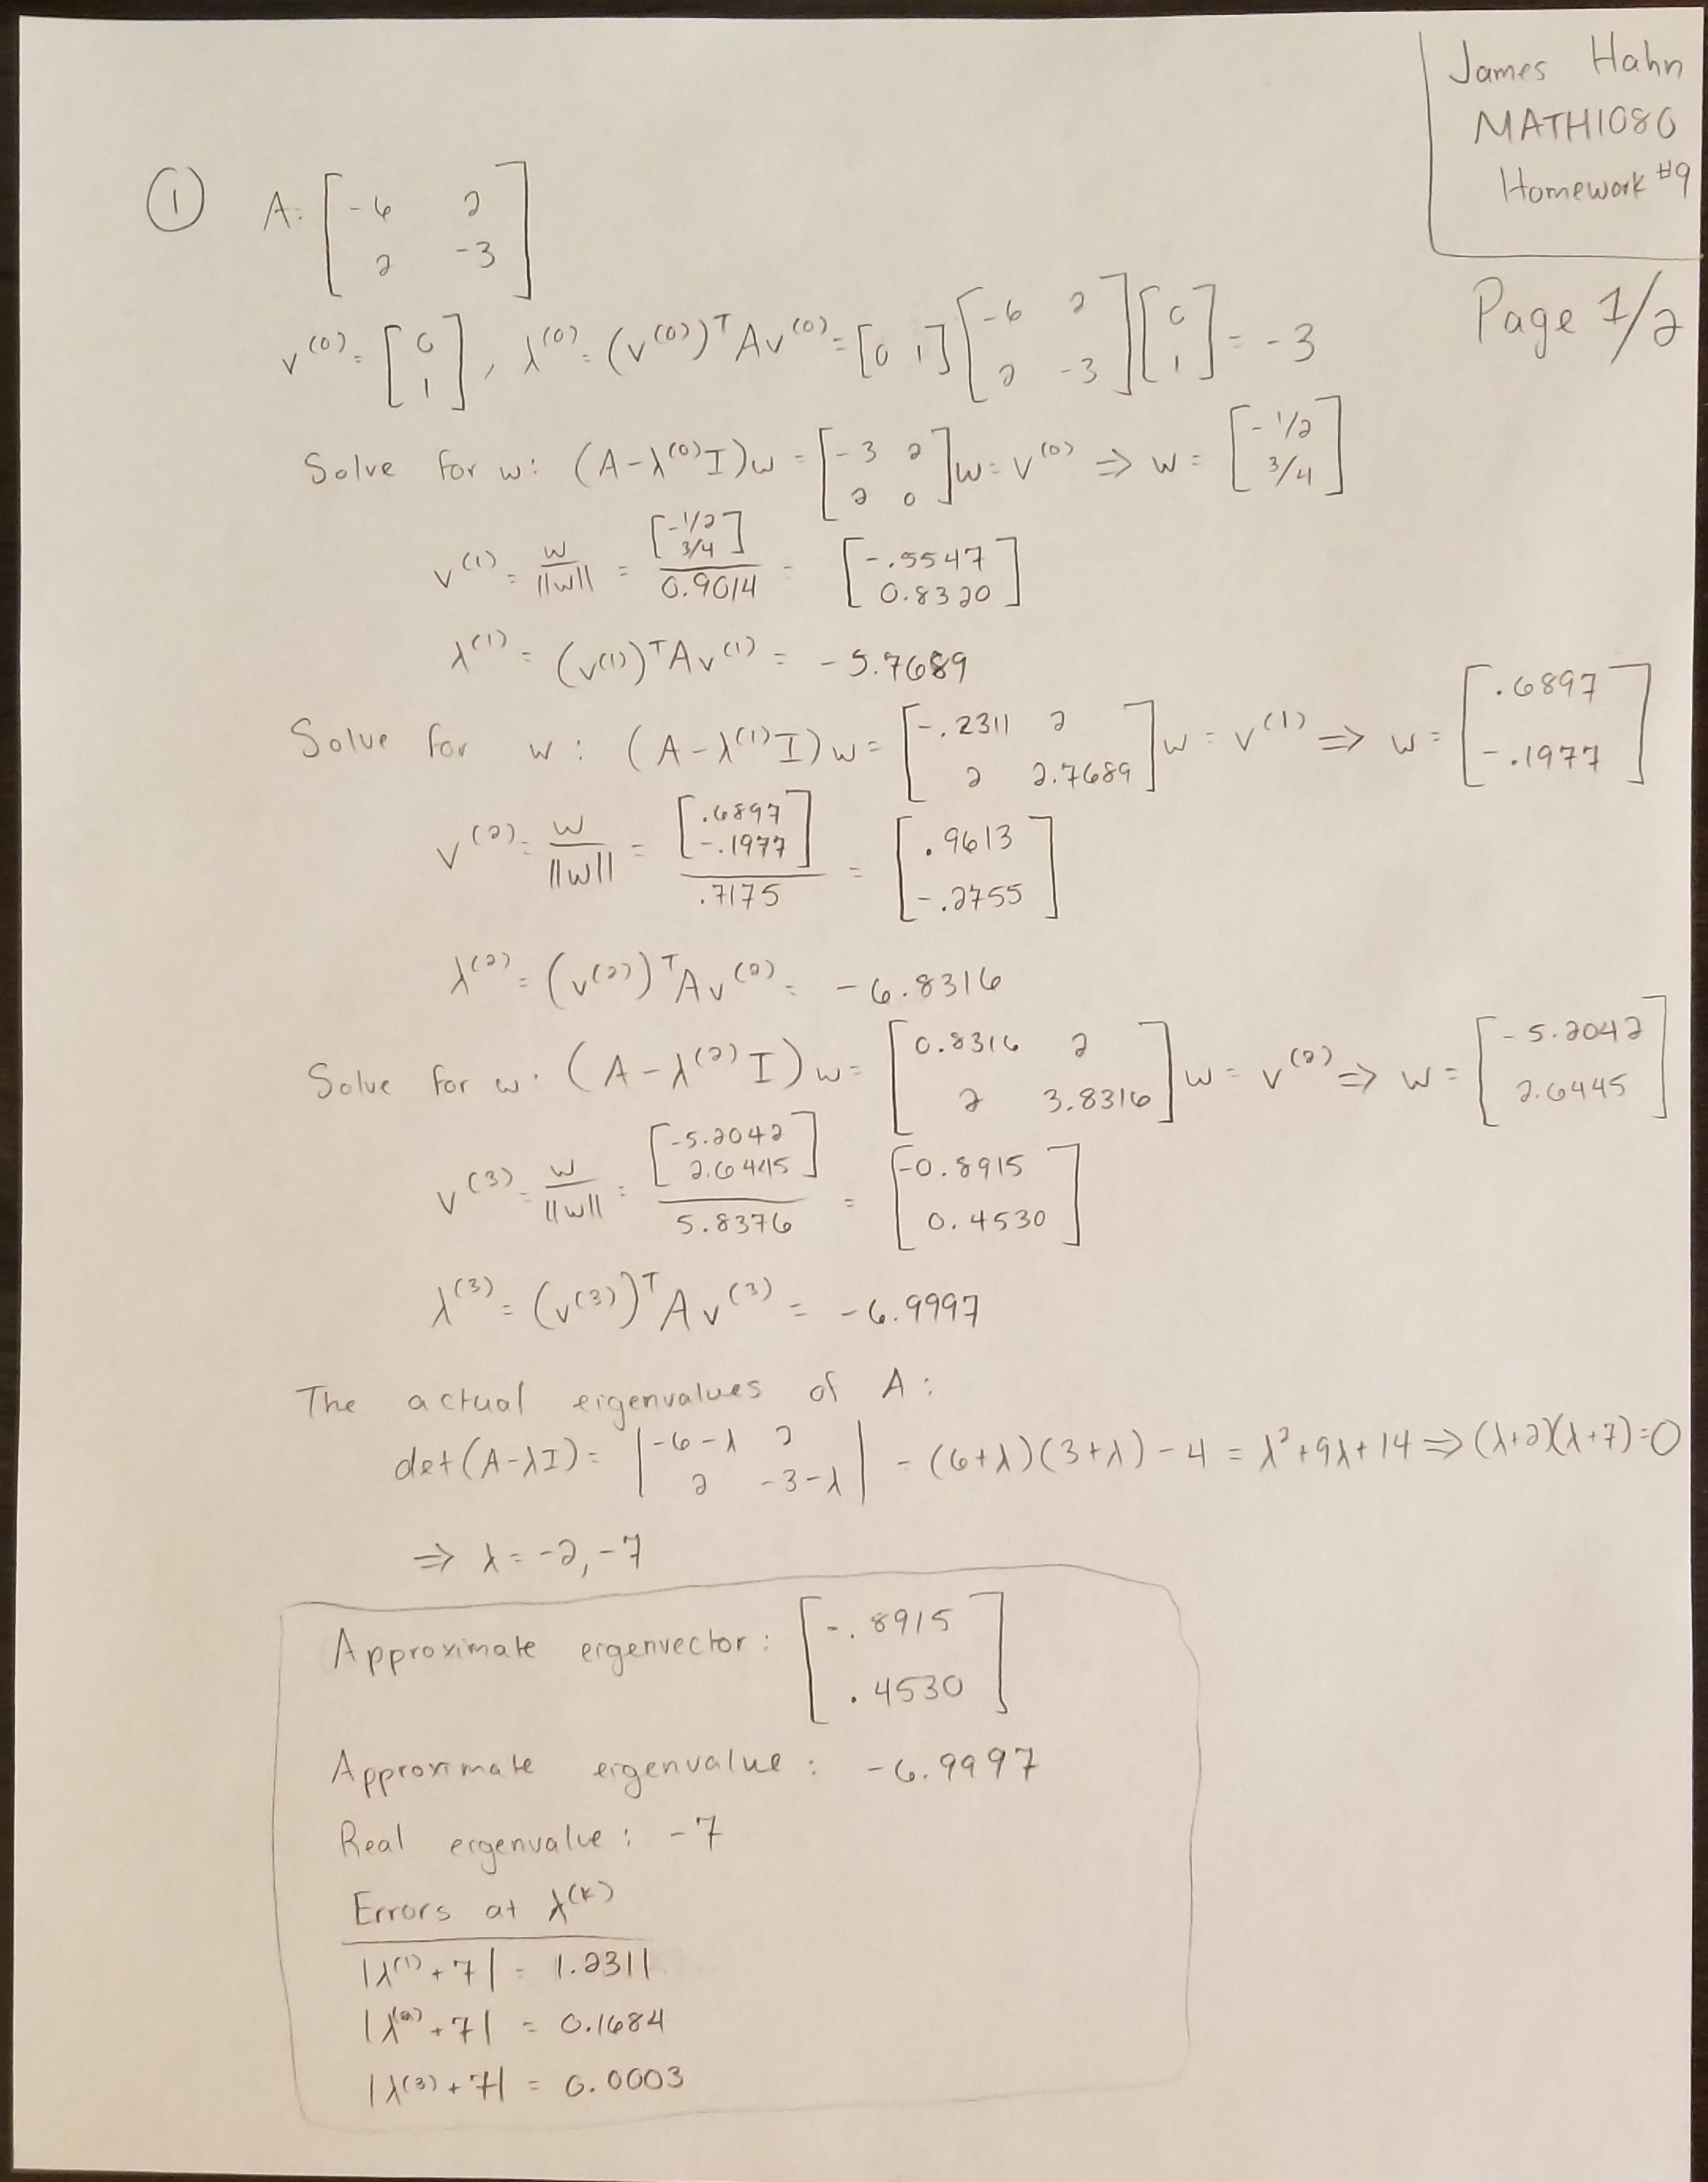 James Hahn
MATH1080
Homework #9
Page 1/2
① A: [-6 2; 2 -3]
v^(0) = [0; 1], λ^(0) = (v^(0))^T A v^(0) = [0 1] [-6 2; 2 -3] [0; 1] = -3
Solve for w: (A-λ^(0)I)w = [-3 2; 2 0] w = v^(0) ⇒ w = [-1/2; 3/4]
v^(1) = w/||w|| = [-1/2; 3/4]/0.9014 = [-.5547; 0.8320]
λ^(1) = (v^(1))^T A v^(1) = -5.7689
Solve for w: (A-λ^(1)I)w = [-.2311 2; 2 2.7689] w = v^(1) ⇒ w = [.6897; -.1977]
v^(2) = w/||w|| = [.6897; -.1977]/.7175 = [.9613; -.2755]
λ^(2) = (v^(2))^T A v^(2) = -6.8316
Solve for w. (A-λ^(2)I)w = [0.8316 2; 2 3.8316] w = v^(2) ⇒ w = [-5.2042; 2.6445]
v^(3) = w/||w|| = [-5.2042; 2.6445]/5.8376 = [-0.8915; 0.4530]
λ^(3) = (v^(3))^T A v^(3) = -6.9997
The actual eigenvalues of A:
det(A-λI) = |-6-λ 2; 2 -3-λ| = (6+λ)(3+λ) - 4 = λ²+9λ+14 ⇒ (λ+2)(λ+7)=0
⇒ λ = -2, -7
Approximate eigenvector: [-.8915; .4530]
Approximate eigenvalue: -6.9997
Real eigenvalue: -7
Errors at λ^(k)
|λ^(1)+7| = 1.2311
|λ^(2)+7| = 0.1684
|λ^(3)+7| = 0.0003